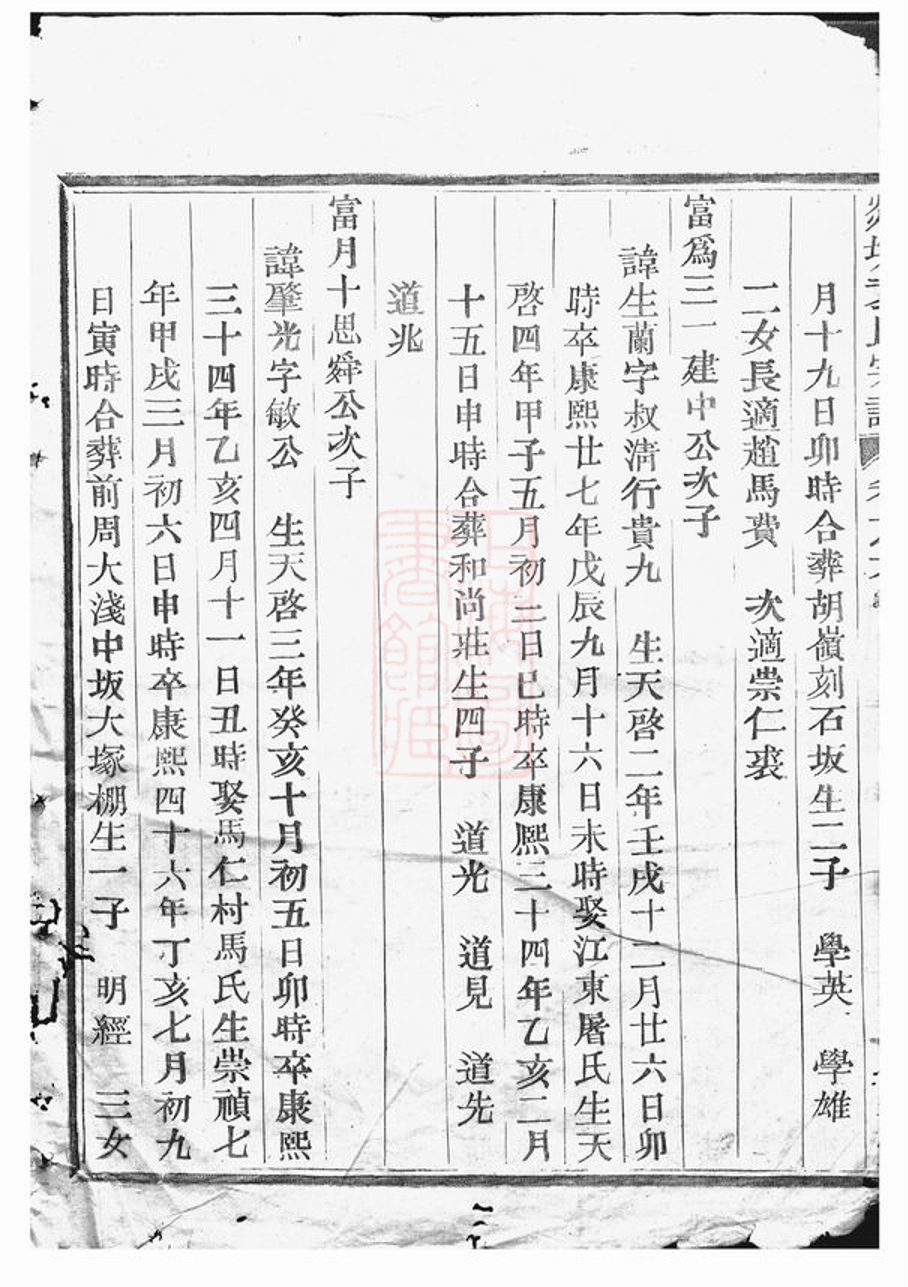 月十九日卯時合葬胡嶺刻石坂生二子　學英　學雄
二女長適趙馬費　次適崇仁裘
富爲三一建中公次子
諱生蘭字叔淸行貴九　生天啓二年壬戌十二月廿六日卯
時卒康熙廿七年戊辰九月十六日未時娶江東屠氏生天
啓四年甲子五月初二日巳時卒康熙三十四年乙亥二月
十五日申時合葬和尚莊生四子　道光　道見　道先
道兆
富月十思舜公次子
諱肇光字敏公　生天啓三年癸亥十月初五日卯時卒康熙
三十四年乙亥四月十一日丑時娶馬仁村馬氏生崇禎七
年甲戌三月初六日申時卒康熙四十六年丁亥七月初九
日寅時合葬前周大淺中坂大塚棚生一子　明經　三女